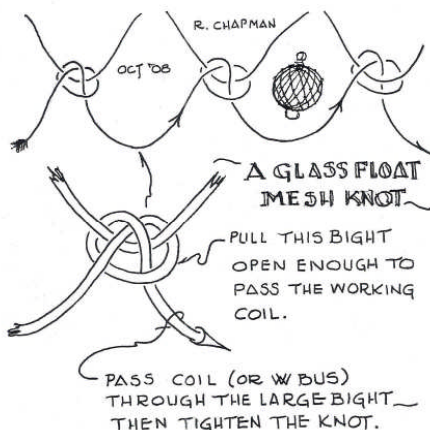 R. CHAPMAN
OCT '08
A GLASS FLOAT
MESH KNOT
PULL THIS BIGHT
OPEN ENOUGH TO
PASS THE WORKING
COIL.
PASS COIL (OR W BUS)
THROUGH THE LARGE BIGHT
THEN TIGHTEN THE KNOT.